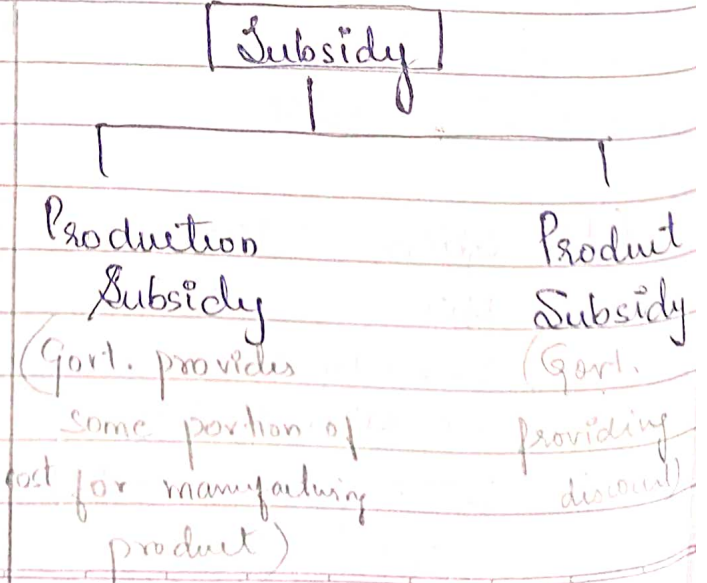 Subsidy
Production
Subsidy
(Govt. provides
some portion of
cost for manufacturing
product)
Product
Subsidy
(Govt.
providing
discount)